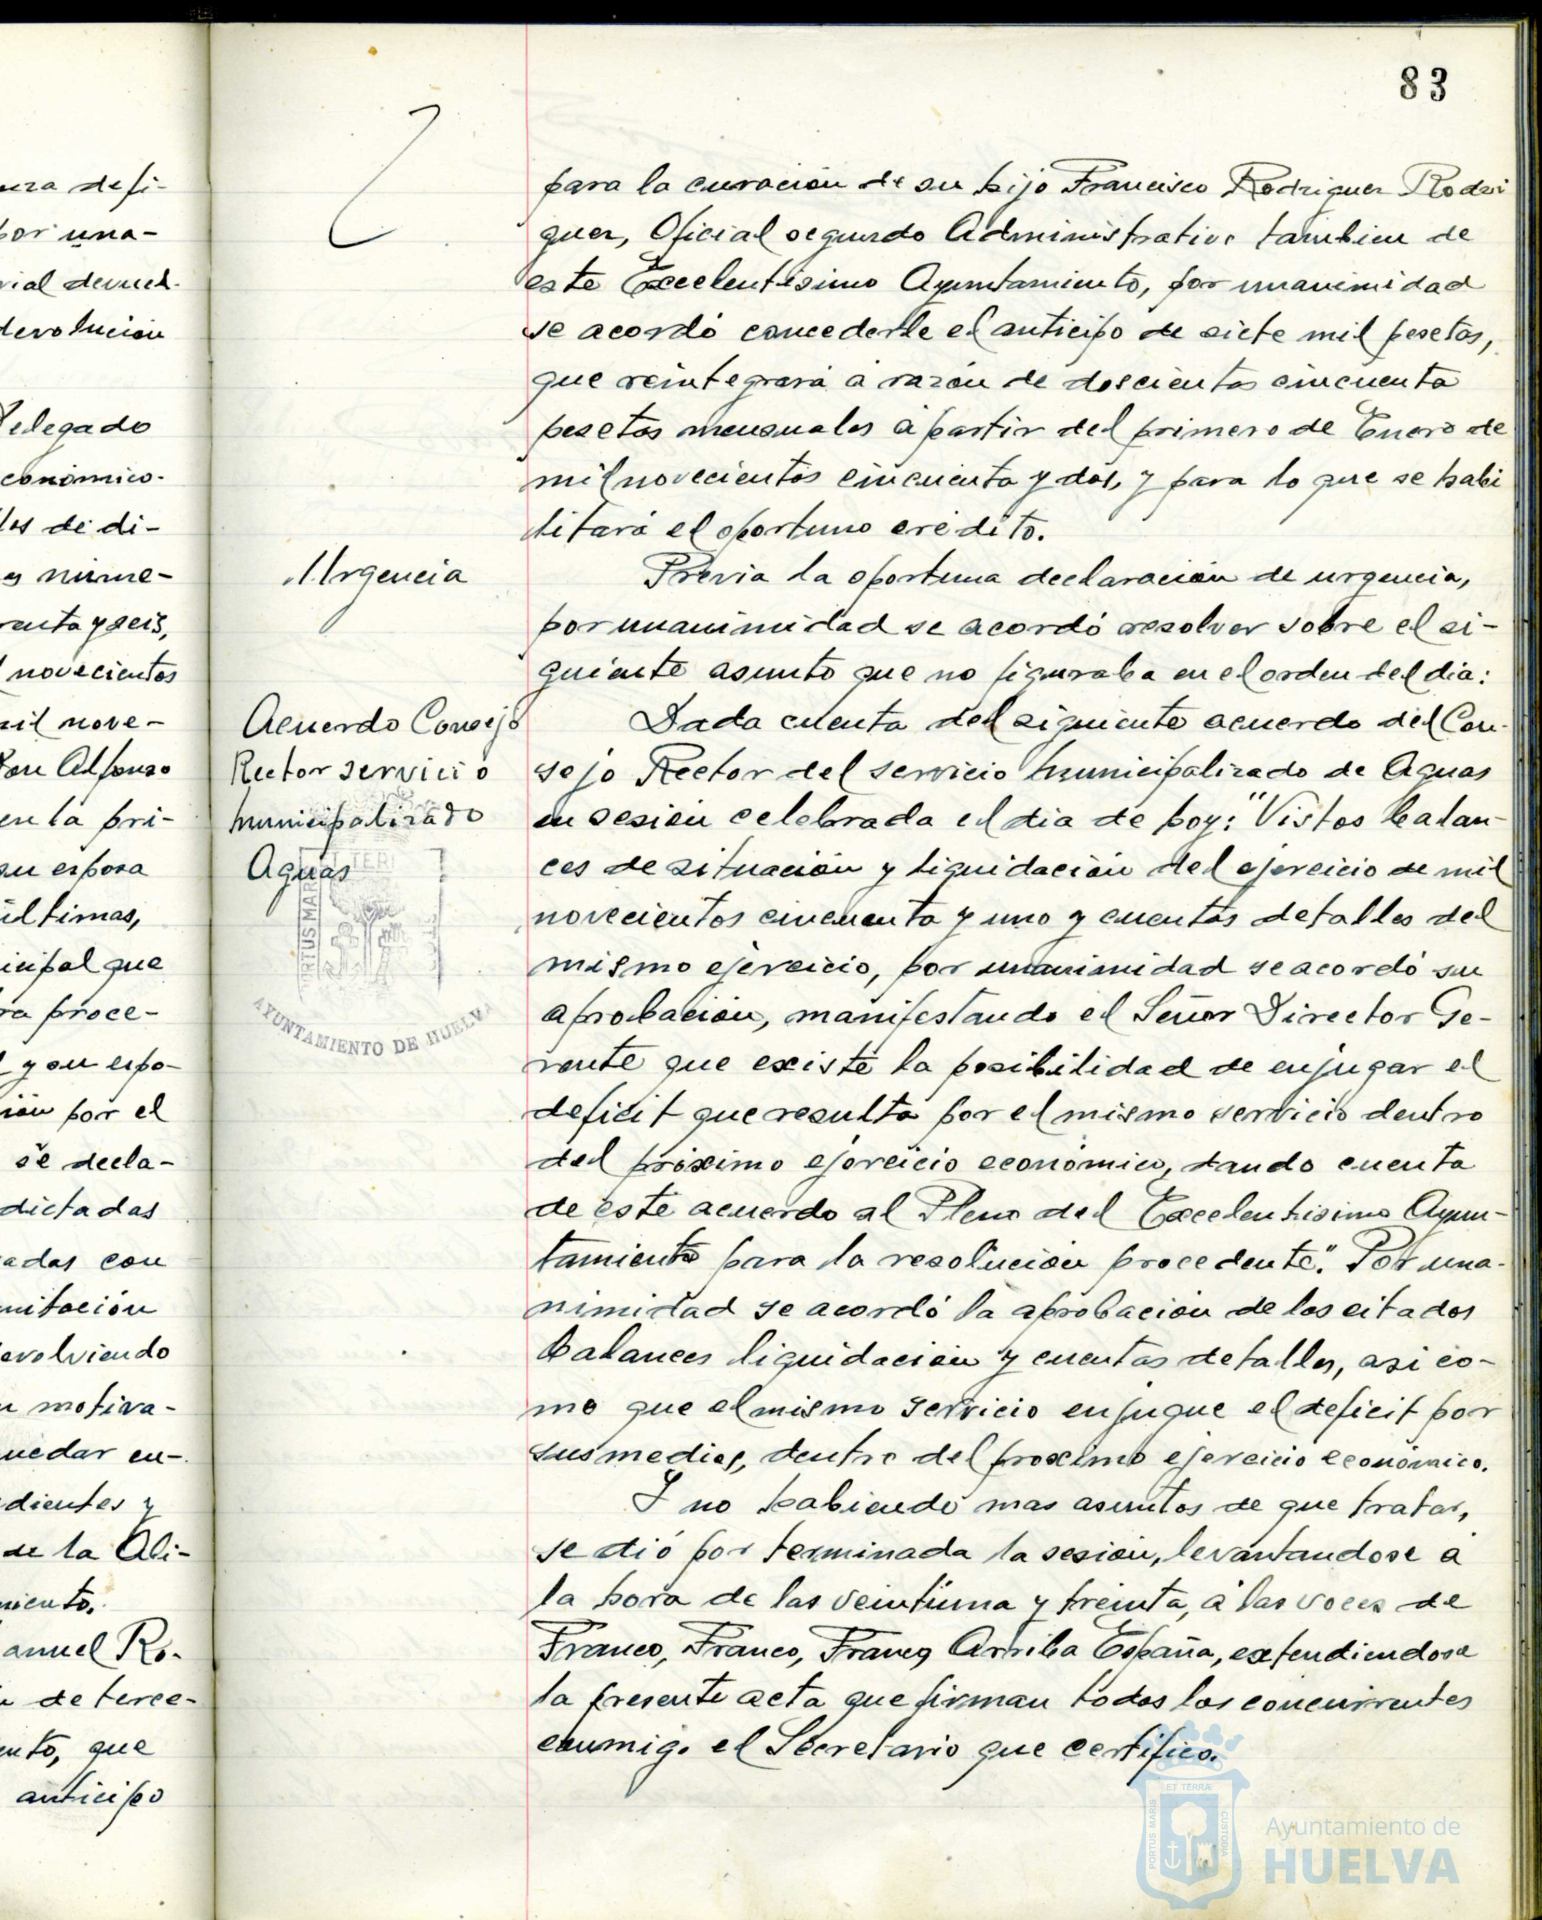 83
uza defi-
por una-
rial devuel-
devolución
Delegado
económico-
los de di-
es nume-
renta y seis,
novecientos
mil nove-
Don Alfonso
en la pri-
su esposa
últimas,
icipal que
ra proce-
y su espo-
ión por el
se decla-
dictadas
adas con
mitación
evolviendo
motiva-
quedar en-
dientes y
de la Ali-
miento.
anuel Ro-
de terce-
ento, que
anticipo
Urgencia
Acuerdo Consejo
Rector servicio
municipalizado
Aguas
ET TER
PORTUS MAR
AYUNTAMIENTO DE HUELVA
para la curación de su hijo Francisco Rodriguez Rodri
guez, Oficial segundo Administrativo tambien de
este Excelentisimo Ayuntamiento, por unanimidad
se acordó concederle el anticipo de siete mil pesetas,
que reintegrará á razón de doscientas cincuenta
pesetas mensuales á partir del primero de Enero de
mil novecientos cincuenta y dos, y para lo que se habi
litará el oportuno crédito.
Previa la oportuna declaración de urgencia,
por unanimidad se acordó resolver sobre el si-
guiente asunto que no figuraba en el orden del dia:
Dada cuenta del siguiente acuerdo del Con-
sejo Rector del servicio municipalizado de Aguas
en sesión celebrada el dia de hoy: "Vistos balan-
ces de situación y liquidación del ejercicio de mil
novecientos cincuenta y uno y cuentas detalles del
mismo ejercicio, por unanimidad se acordó su
aprobación, manifestando el Señor Director Ge-
rente que existe la posibilidad de enjugar el
deficit que resulta por el mismo servicio dentro
del próximo ejercicio económico, dando cuenta
de este acuerdo al Pleno del Excelentisimo Ayun-
tamiento para la resolución procedente". Por una-
nimidad se acordó la aprobación de los citados
balances liquidación y cuentas detalles, asi co-
mo que el mismo servicio enjugue el deficit por
sus medios, dentro del proximo ejercicio económico.
Y no habiendo mas asuntos de que tratar,
se dió por terminada la sesión, levantandose á
la hora de las veintiuna y treinta, á las voces de
Franco, Franco, Franco, Arriba España, extendiendose
la presente acta que firman todos los concurrentes
conmigo el Secretario que certifico.
ET TERRÆ
PORTUS MARIS
CUSTODIA
Ayuntamiento de
HUELVA